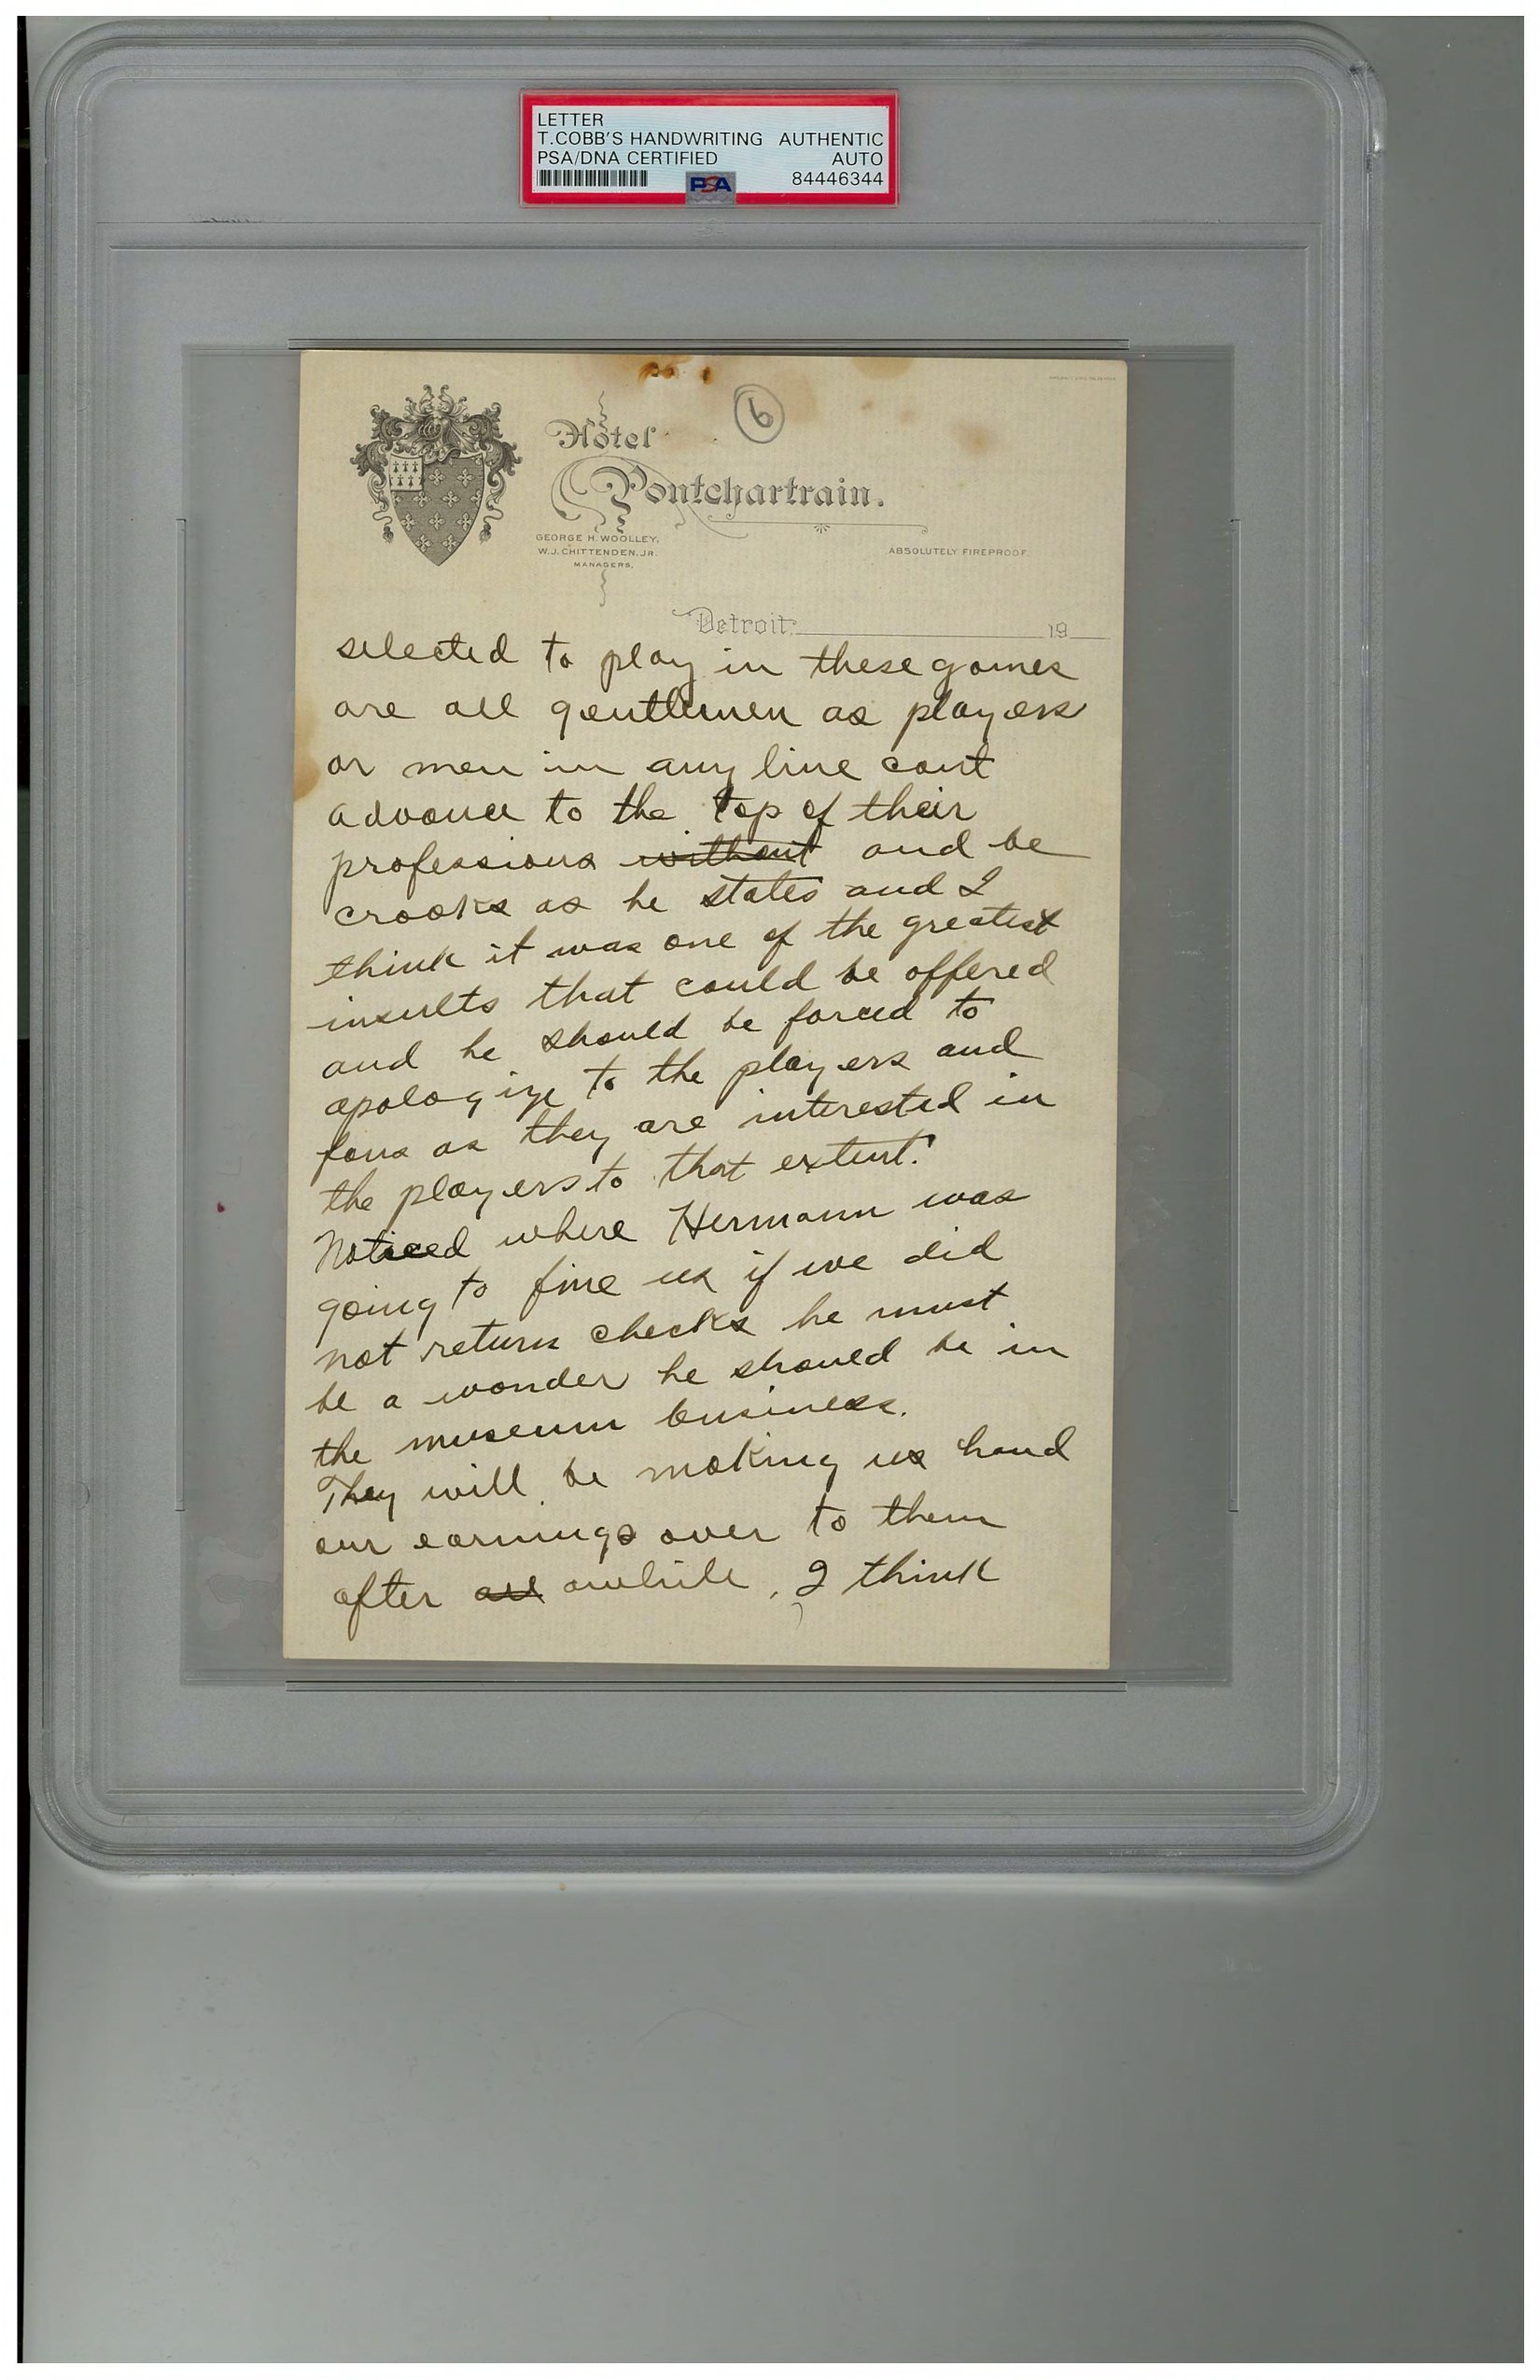 LETTER
T.COBB'S HANDWRITING AUTHENTIC
PSA/DNA CERTIFIED AUTO
PSA 84446344
6
Hotel
Pontchartrain.
GEORGE H. WOOLLEY,
W.J. CHITTENDEN, JR.
MANAGERS.
ABSOLUTELY FIREPROOF.
Detroit, 19
selected to play in these games
are all gentlemen as players
or men in any line cant
advance to the top of their
professions without and be
crooks as he states and I
think it was one of the greatest
insults that could be offered
and he should be forced to
apologize to the players and
fans as they are interested in
the players to that extent.
Noticed where Hermann was
going to fine us if we did
not return checks he must
be a wonder he should be in
the museum business.
They will be making us hand
our earnings over to them
after all awhile, I think